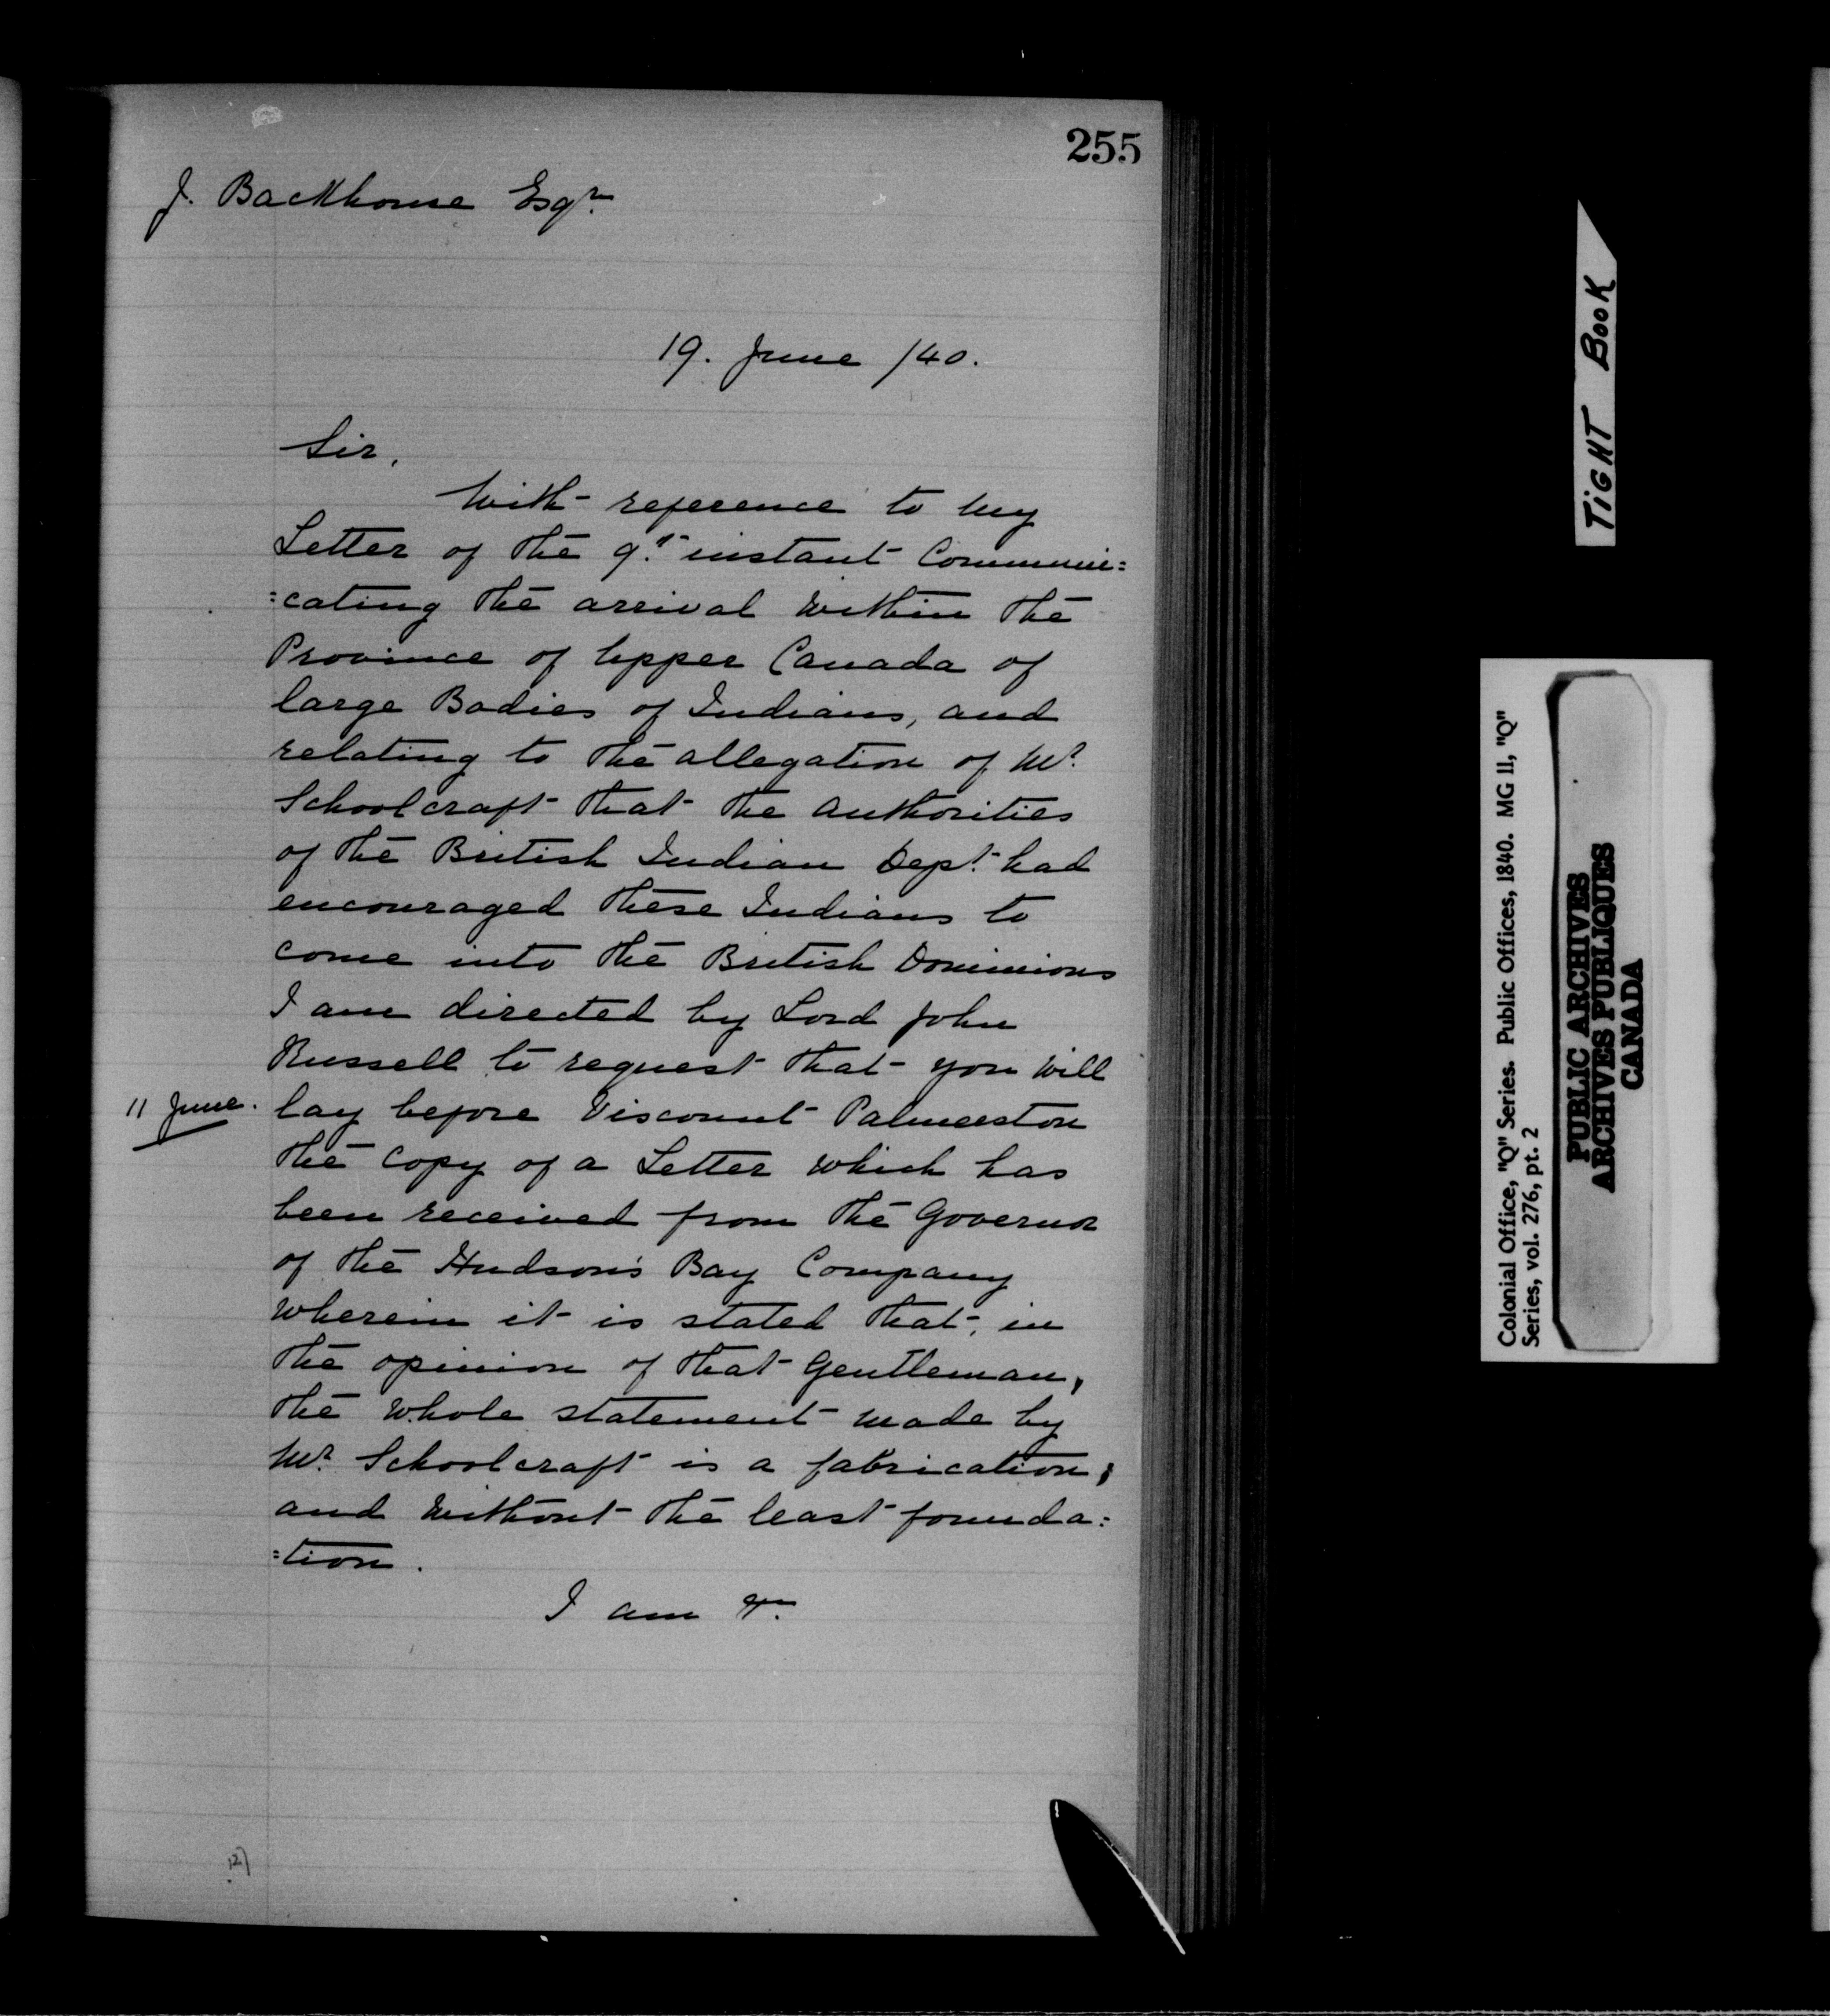 255
J. Backhouse Esqr.
19. June /40.
Sir,
With reference to my
Letter of the 9th instant Communi=
=cating the arrival within the
Province of Upper Canada of
large Bodies of Indians, and
relating to the allegation of Mr.
Schoolcraft that the authorities
of the British Indian Dept. had
encouraged these Indians to
come into the British Dominions
I am directed by Lord John
Russell to request that you will
11 June. lay before Viscount Palmerston
the copy of a Letter which has
been received from the Governor
of the Hudson's Bay Company
wherein it is stated that, in
the opinion of that Gentleman,
the whole statement made by
Mr. Schoolcraft is a fabrication,
and without the least founda=
=tion.
I am &c.
TIGHT BOOK
Colonial Office, "Q" Series. Public Offices, 1840. MG 11, "Q"
Series, vol. 276, pt. 2
PUBLIC ARCHIVES
ARCHIVES PUBLIQUES
CANADA